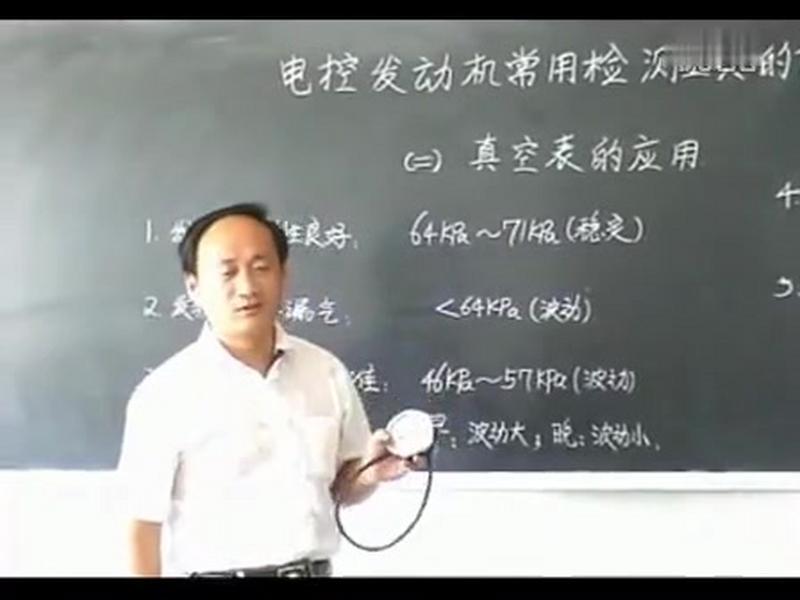 电控发动机常用检测 的
(二) 真空表的应用
1. 发 性良好: 64KPa～71KPa(稳定)
2. 发 漏气: <64KPa(波动)
准: 46KPa～57KPa(波动)
早: 波动大; 晚: 波动小.
4.
5.